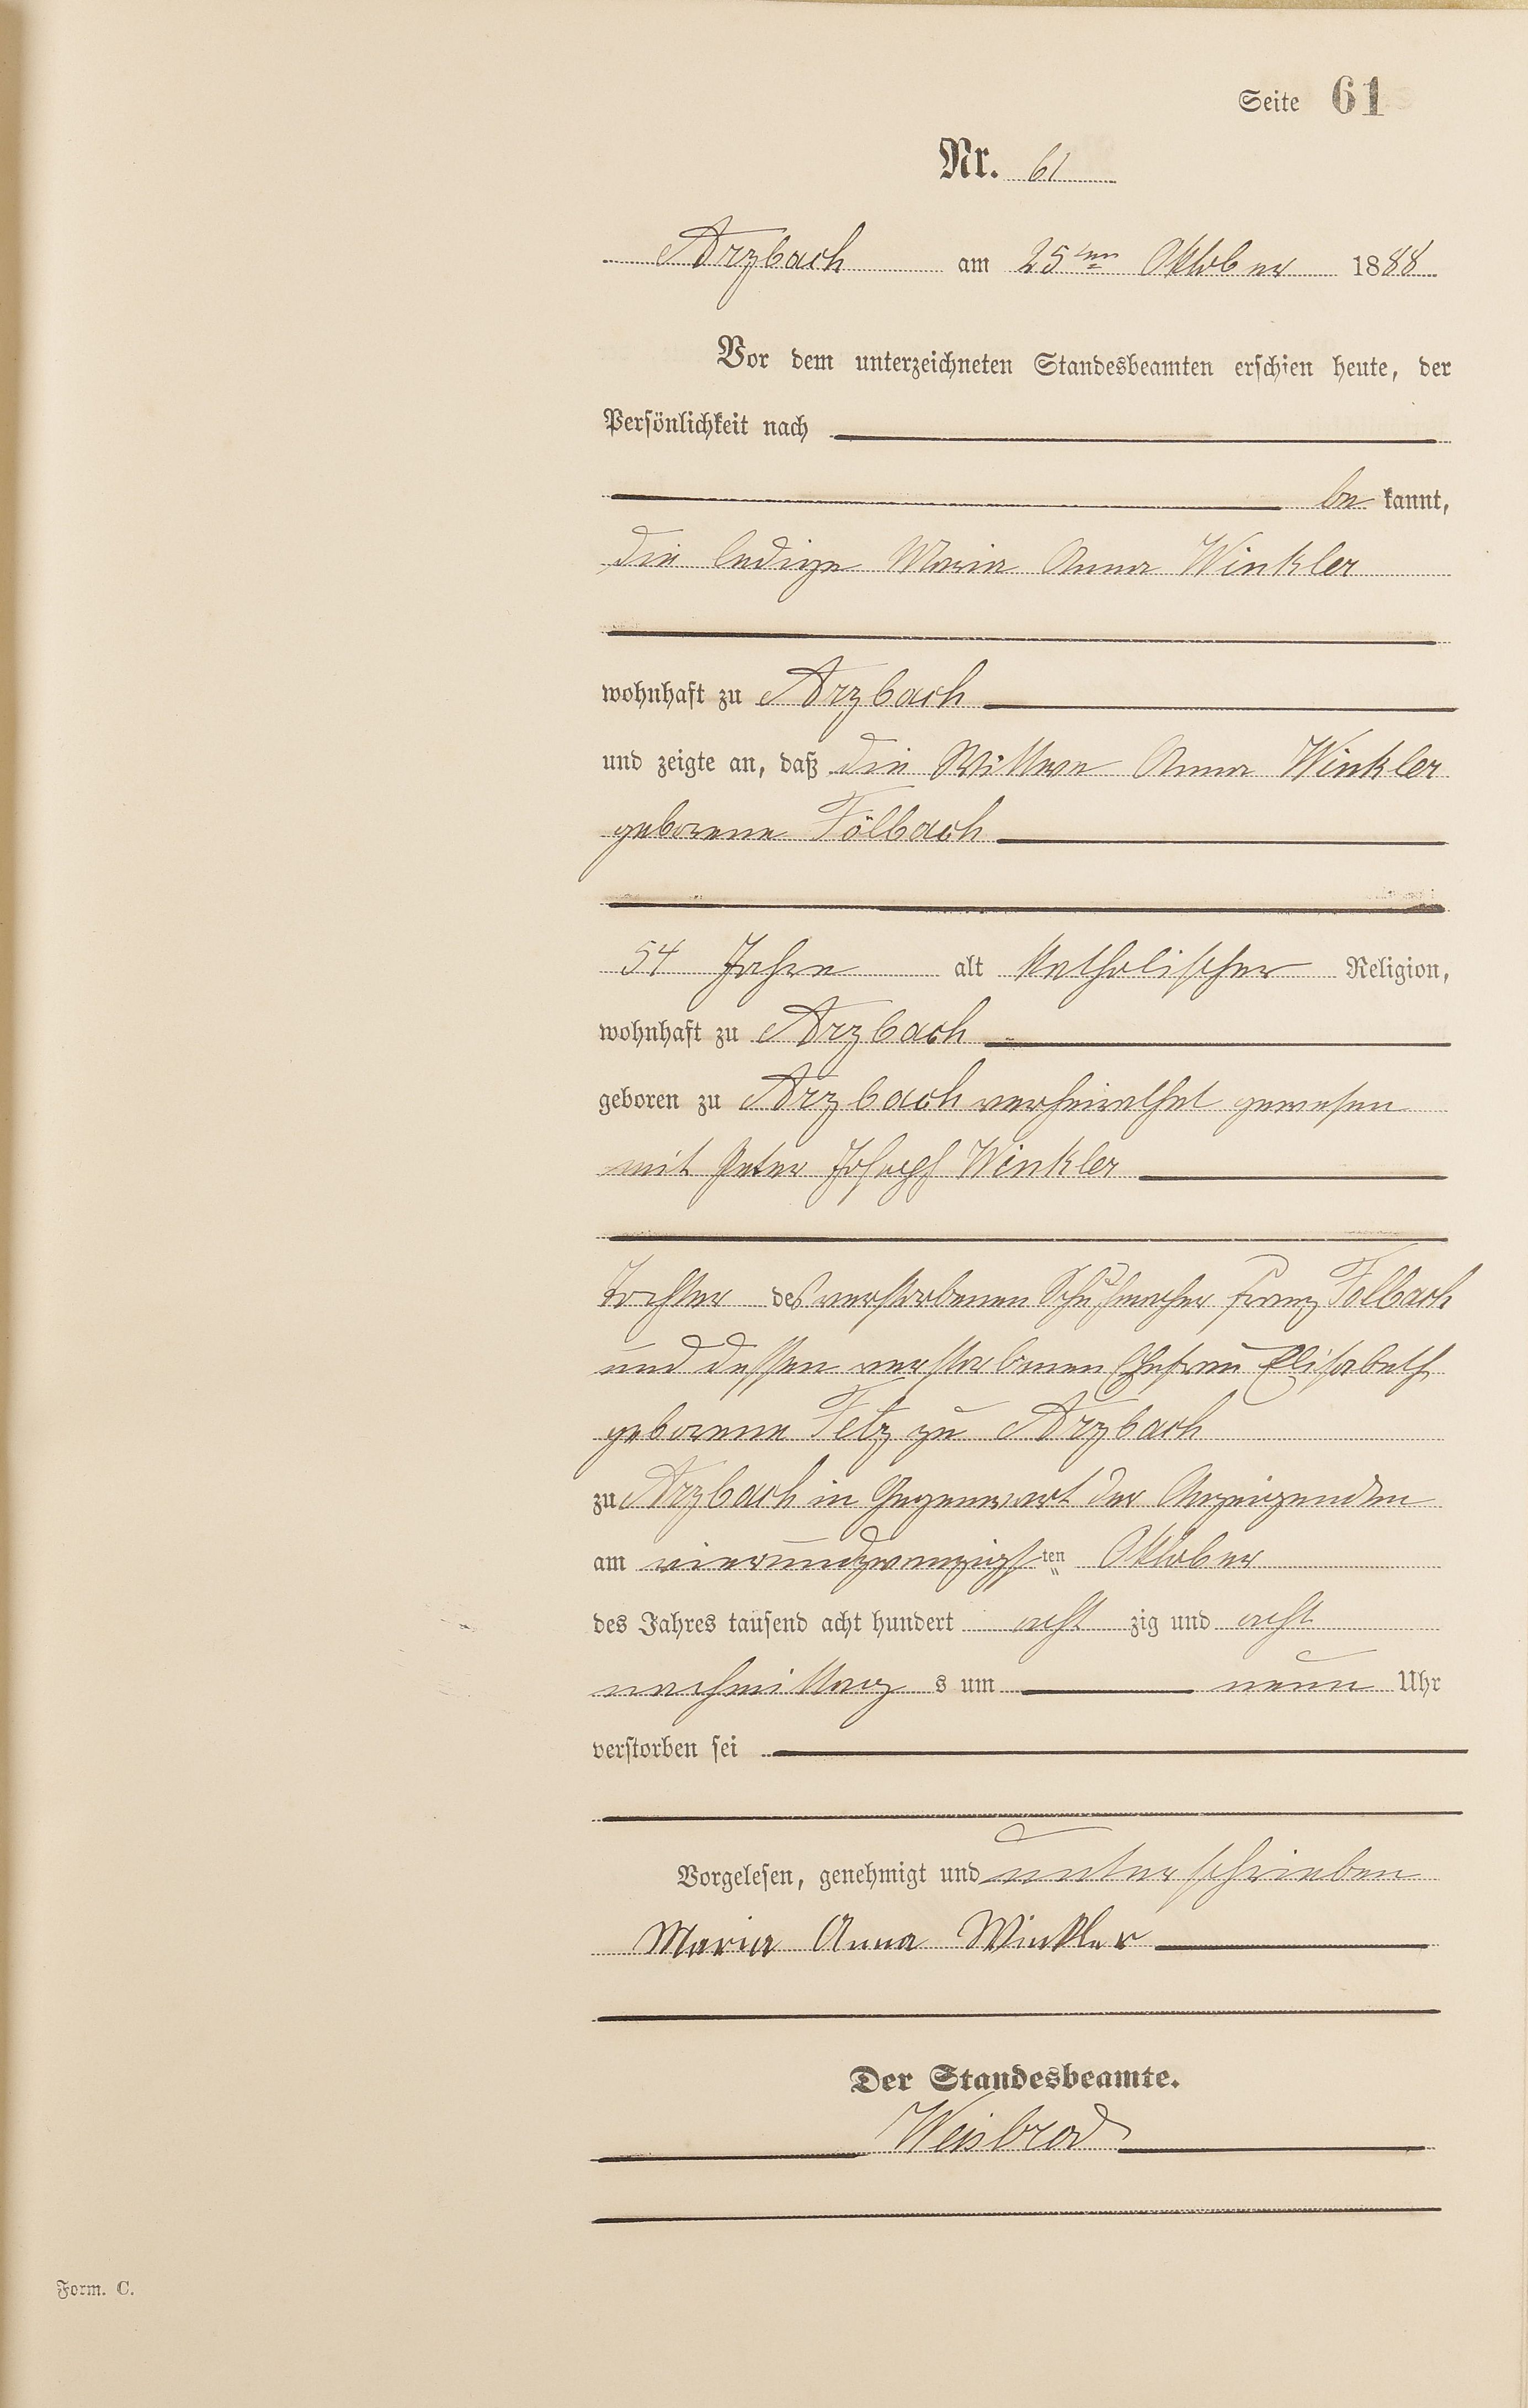 Seite 61
Nr. 61
Arzbach am 25ten Oktober 1888
Vor dem unterzeichneten Standesbeamten erschien heute, der
Persönlichkeit nach
be kannt,
die ledige Maria Anna Winkler
wohnhaft zu Arzbach
und zeigte an, daß die Wittwe Anna Winkler
geborene Fölbach
54 Jahre alt katholischer Religion,
wohnhaft zu Arzbach
geboren zu Arzbach verheirathet gewesen
mit Peter Joseph Winkler
Tochter des verstorbenen Schuhmacher Franz Folbach
und dessen verstorbenen Ehefrau Elisabeth
geborene Felz zu Arzbach
zu Arzbach in Gegenwart der Anzeigenden
am vierundzwanzigsten Oktober
des Jahres tausend acht hundert acht zig und acht
nachmittag s um neun Uhr
verstorben sei
Vorgelesen, genehmigt und unterschrieben
Maria Anna Winkler
Der Standesbeamte.
Weisbrod
Form. C.